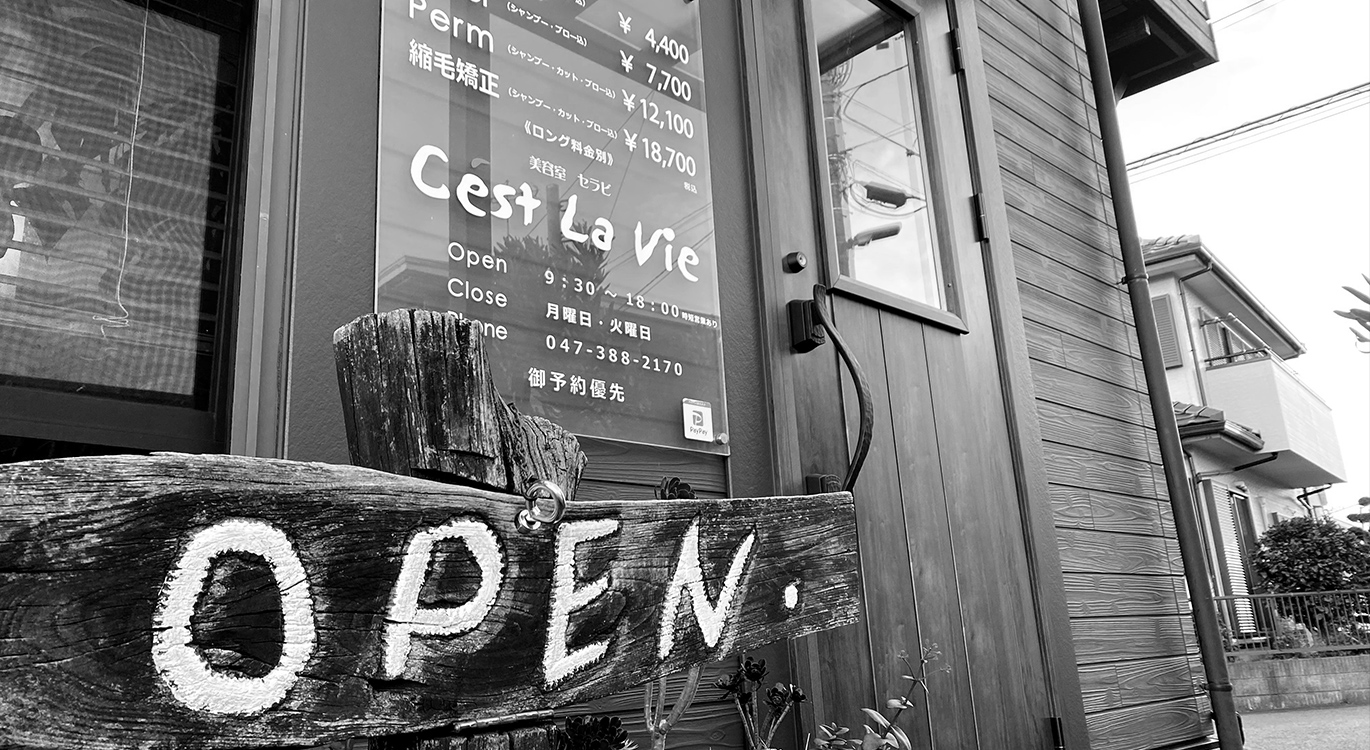 ¥ 4,400
(シャンプー・ブロー込)
¥ 7,700
Perm (シャンプー・カット・ブロー込) ¥ 12,100
縮毛矯正 (シャンプー・カット・ブロー込) ¥ 18,700
《ロング料金別》
税込
美容室 セラビ
C'est La Vie
Open 9:30 ~ 18:00 時短営業あり
Close 月曜日・火曜日
Phone 047-388-2170
御予約優先
PayPay
OPEN.